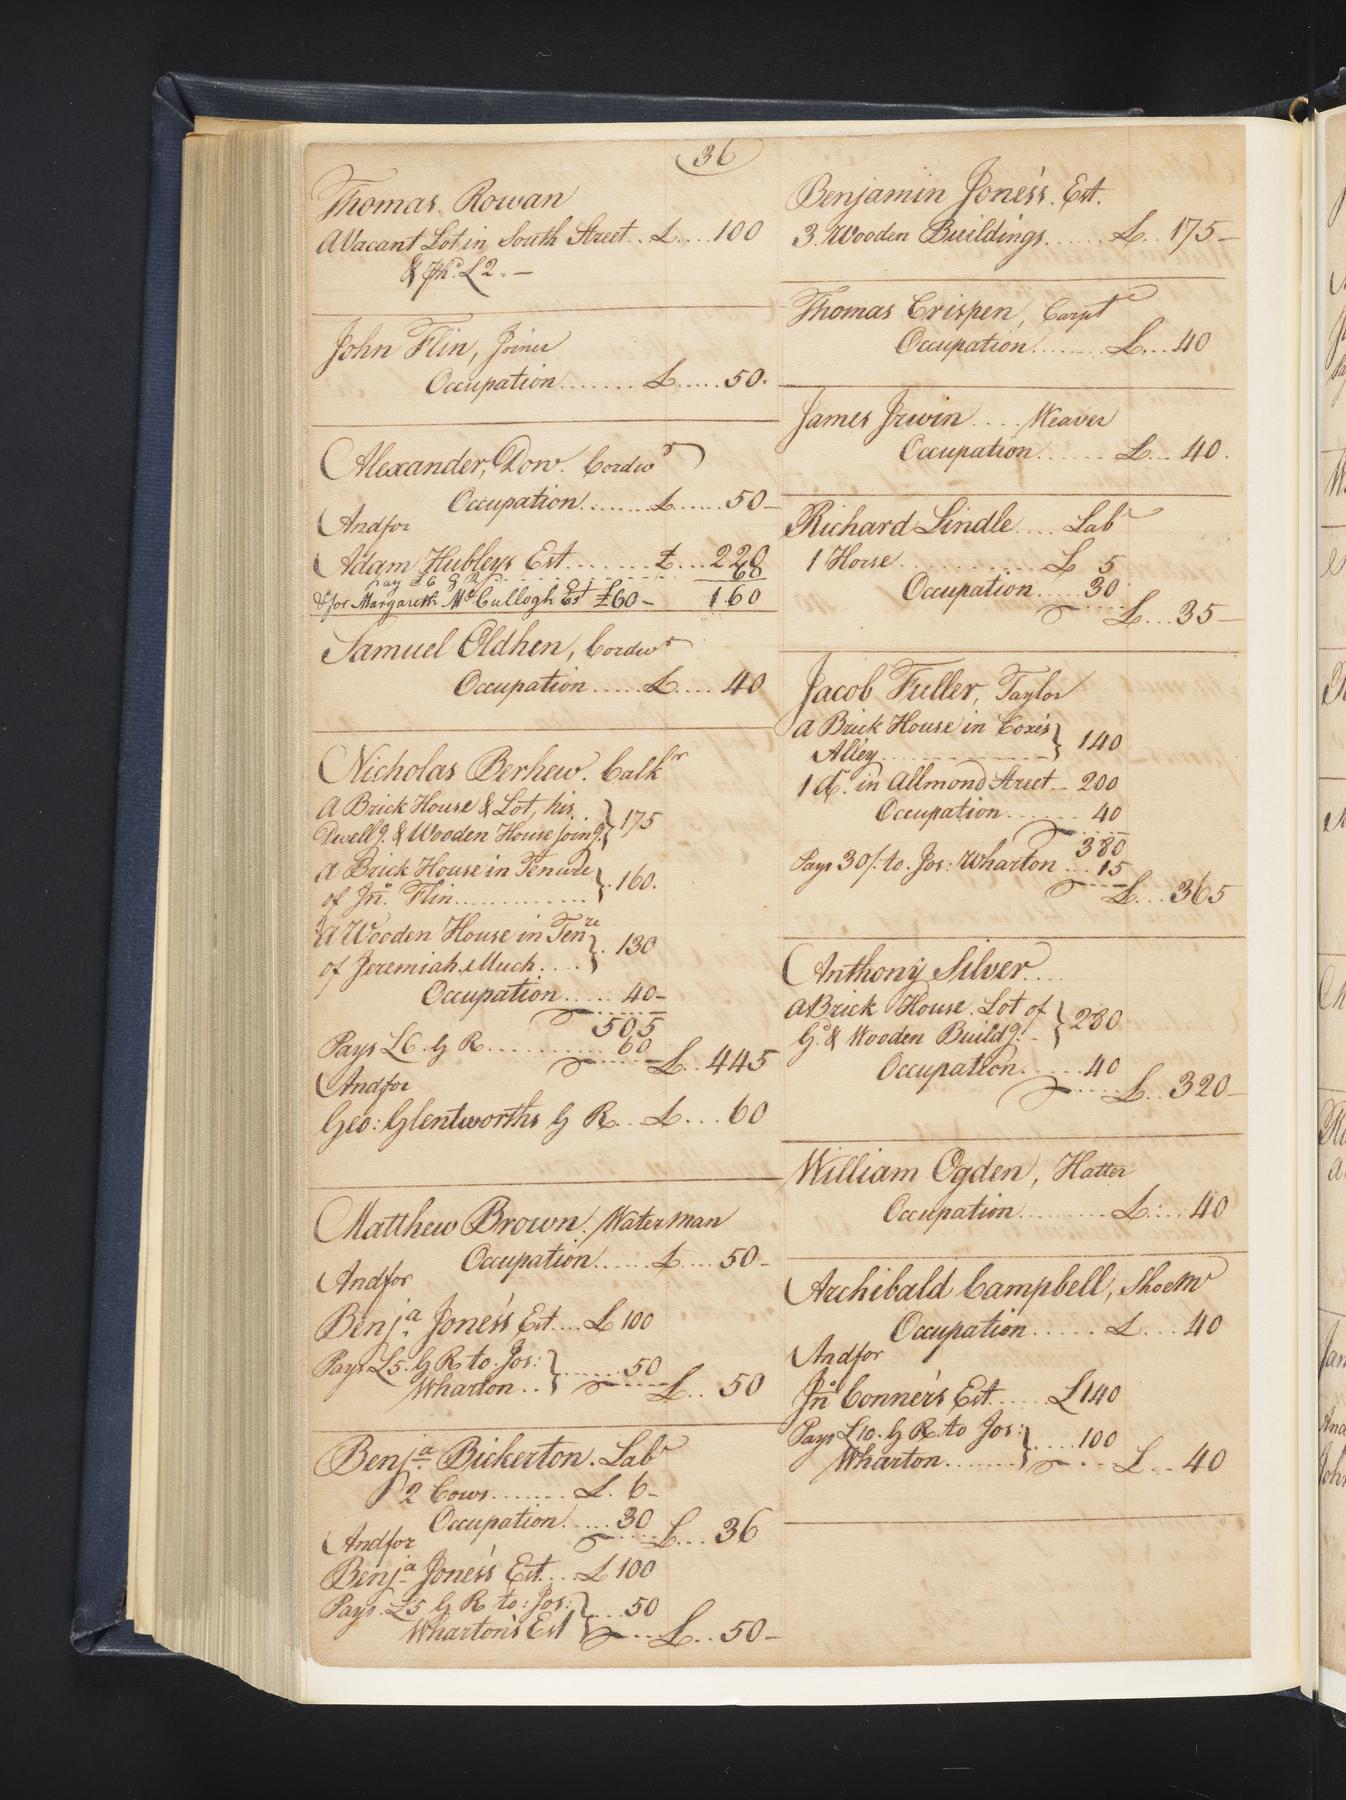 36
Thomas Rowan
A Vacant Lot in South Street.. £....100
& Ph. £2.—
John Flin, Joiner
Occupation....... £.....50.
Alexander Dow. Cordwr
Occupation....... £......50—
And for
Adam Hubleys Est....... £...220
Pay £6 G R........ 60
& for Margareth McCullogh Est £60— 160
Samuel Oldhen, Cordwr
Occupation..... £.... 40
Nicholas Berhew. Calkr
A Brick House & Lot, his
Dwellg. & Wooden House joing. } 175
A Brick House in Tenure
of Jno. Flin............. } 160.
A Wooden House in Tenre
of Jeremiah Much.... } 130
Occupation..... 40—
505
Pays £6. G R........... 60 — £..445
And for
Geo: Glentworths G R.. £... 60
Matthew Brown. Waterman
Occupation...... £.... 50—
And for
Benja. Jones's Est.... £100
Pays £5. G R to Jos:
Wharton.. } ......50 £.. 50
Benja. Bickerton. Labr
2 Cows....... £. 6—
Occupation..... 30 £... 36
And for
Benja. Jones's Est... £100
Pays. £5 G R to: Jos:
Wharton's Est } ....50 £.. 50—
Benjamin Jones's. Est.
3. Wooden Buildings....... £.. 175—
Thomas Crispen, Carptr
Occupation........ £... 40
James Irwin.... Weaver
Occupation....... £... 40.
Richard Lindle.... Labr
1 Horse............... £ 5
Occupation.... 30
£...35—
Jacob Fuller, Taylor
A Brick House in Coxes
Alley............... } 140
1 do. in Allmond Street— 200
Occupation....... 40
380
Pays 30/. to. Jos: Wharton... 15
£... 365
Anthony Silver...
A Brick House. Lot of
Gd. & Wooden Buildg. } 280
Occupation..... 40
£.. 320—
William Ogden, Hatter
Occupation......... £.... 40
Archibald Campbell, Shoemr
Occupation...... £.... 40
And for
Jno. Conner's Est...... £140
Pays £10. G R. to Jos:
Wharton....... } ....100
£... 40